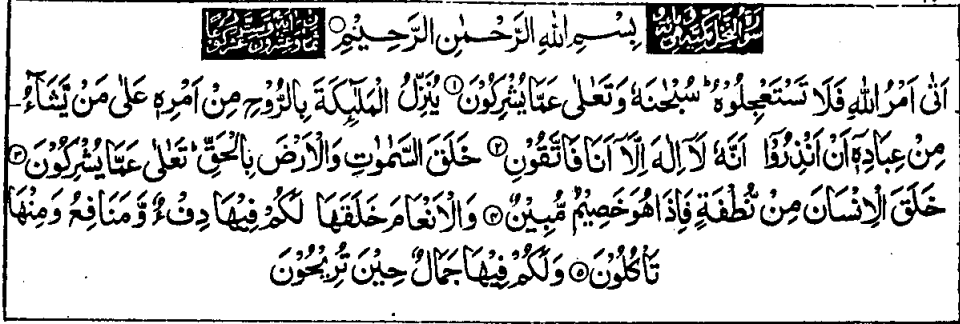 سورة النحل مكية بِسْمِ اللهِ الرَّحْمٰنِ الرَّحِيْمِ
اَتٰى اَمْرُ اللهِ فَلَا تَسْتَعْجِلُوْهُ ؕ سُبْحٰنَهٗ وَتَعٰلٰى عَمَّا يُشْرِكُوْنَ ۝۱ يُنَزِّلُ الْمَلٰٓئِكَةَ بِالرُّوْحِ مِنْ اَمْرِهٖ عَلٰى مَنْ يَّشَآءُ
مِنْ عِبَادِهٖٓ اَنْ اَنْذِرُوْٓا اَنَّهٗ لَآ اِلٰهَ اِلَّآ اَنَا فَاتَّقُوْنِ ۝۲ خَلَقَ السَّمٰوٰتِ وَالْاَرْضَ بِالْحَقِّ ؕ تَعٰلٰى عَمَّا يُشْرِكُوْنَ ۝۳
خَلَقَ الْاِنْسَانَ مِنْ نُّطْفَةٍ فَاِذَا هُوَ خَصِيْمٌ مُّبِيْنٌ ۝۴ وَالْاَنْعَامَ خَلَقَهَا لَكُمْ فِيْهَا دِفْءٌ وَّمَنَافِعُ وَمِنْهَا
تَاْكُلُوْنَ ۝۵ وَلَكُمْ فِيْهَا جَمَالٌ حِيْنَ تُرِيْحُوْنَ